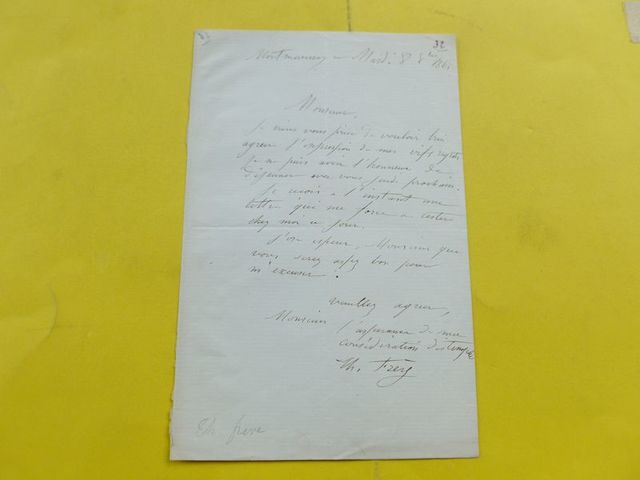 32
Montmorency Mardi 8 8bre 1861
Monsieur,
Je viens vous prier de vouloir bien
agréer l'expression de mes vifs regrets
Je ne puis avoir l'honneur de
déjeuner avec vous jeudi prochain.
Je reçois à l'instant une
lettre qui me force à rester
chez moi ce jour.
J'ose espérer, Monsieur que
vous serez assez bon pour
m'excuser!
Veuillez agréer,
Monsieur
l'assurance de ma
considération distinguée
Th. Frère
Th frere